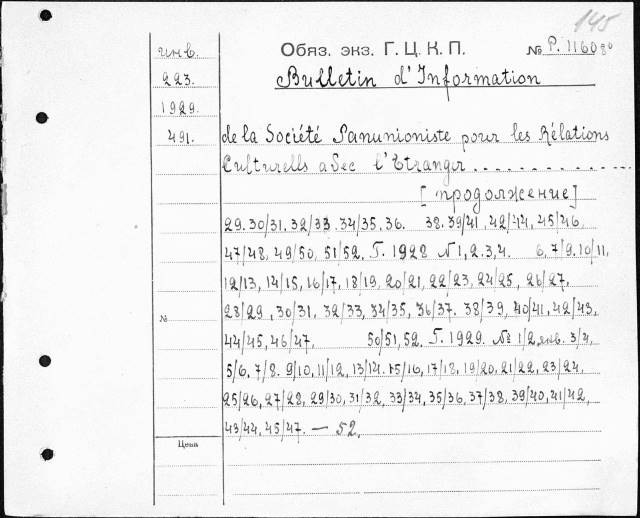 145
инв.
223.
1929.
491.
Обяз. экз. Г. Ц. К. П. № Р. 11608°
Bulletin d'Information
de la Société Panunioniste pour les Rélations
Culturells avec l'Etranger . . . . . . . . . . .
[продолжение]
29. 30/31. 32/33. 34/35, 36. 38. 39/41, 42/44, 45/46,
47/48, 49/50, 51/52. Г. 1928 №1, 2. 3, 4. 6, 7/9. 10/11,
12/13, 14/15, 16/17, 18/19. 20/21, 22/23, 24/25, 26/27,
28/29, 30/31, 32/33, 34/35, 36/37. 38/39, 40/41, 42/43,
№
44/45, 46/47, 50/51, 52. Г. 1929. № 1/2, янв. 3/4,
5/6, 7/8. 9/10, 11/12, 13/14. 15/16, 17/18, 19/20, 21/22, 23/24,
25/26, 27/28, 29/30, 31/32, 33/34, 35/36, 37/38, 39/40, 41/42,
43/44, 45/47. — 52.
Цена